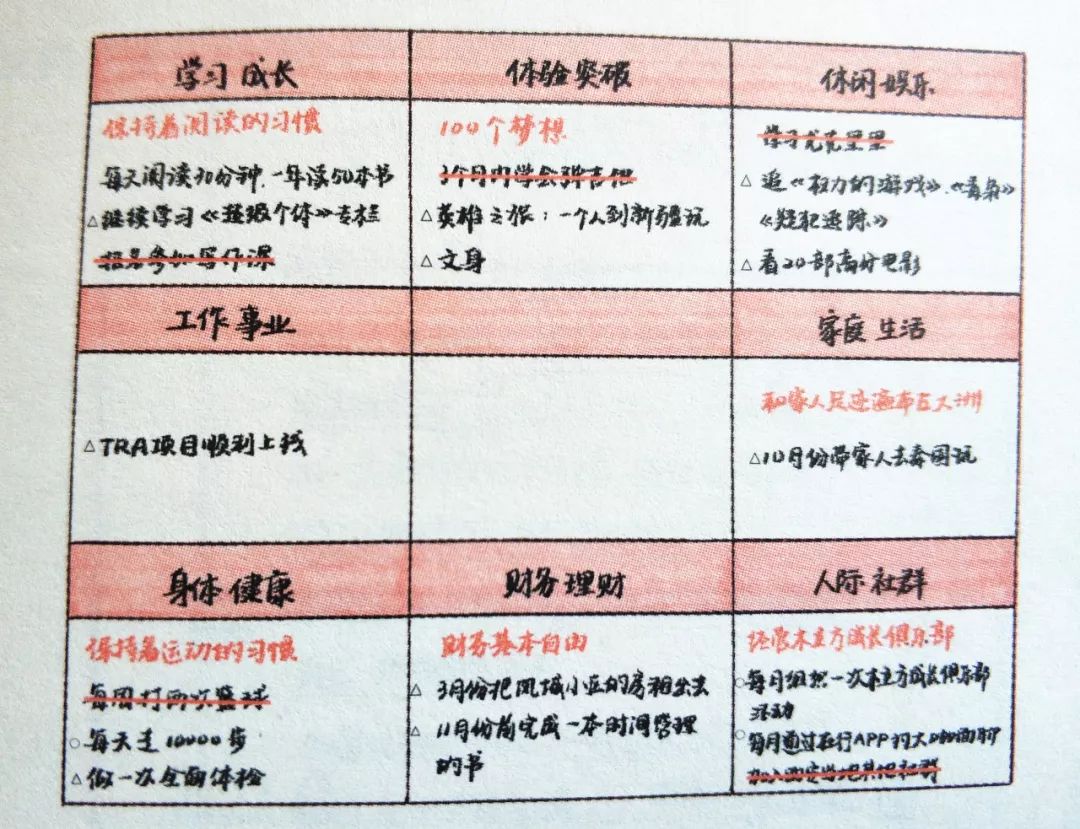 学习成长
体验突破
休闲娱乐
保持着阅读的习惯
每天阅读30分钟,一年读50本书
△继续学习《超级个体》专栏
报名参加写作课
100个梦想
3个月内学会弹吉他
△英雄之旅:一个人到新疆玩
△文身
学习尤克里里
△追《权力的游戏》、《毒枭》
《疑犯追踪》
△看20部高分电影
工作事业
家庭生活
△TRA项目顺利上线
和家人足迹遍布五大洲
△10月份带家人去泰国玩
身体健康
财务理财
人际社群
保持着运动的习惯
每周打两次篮球
○每天走10000步
△做一次全面体检
财务基本自由
△3月份把凤城小区的房租出去
△11月份前完成一本时间管理
的书
经营木立方成长俱乐部
○每月组织一次木立方成长俱乐部
活动
○每月通过在行APP约大咖面聊